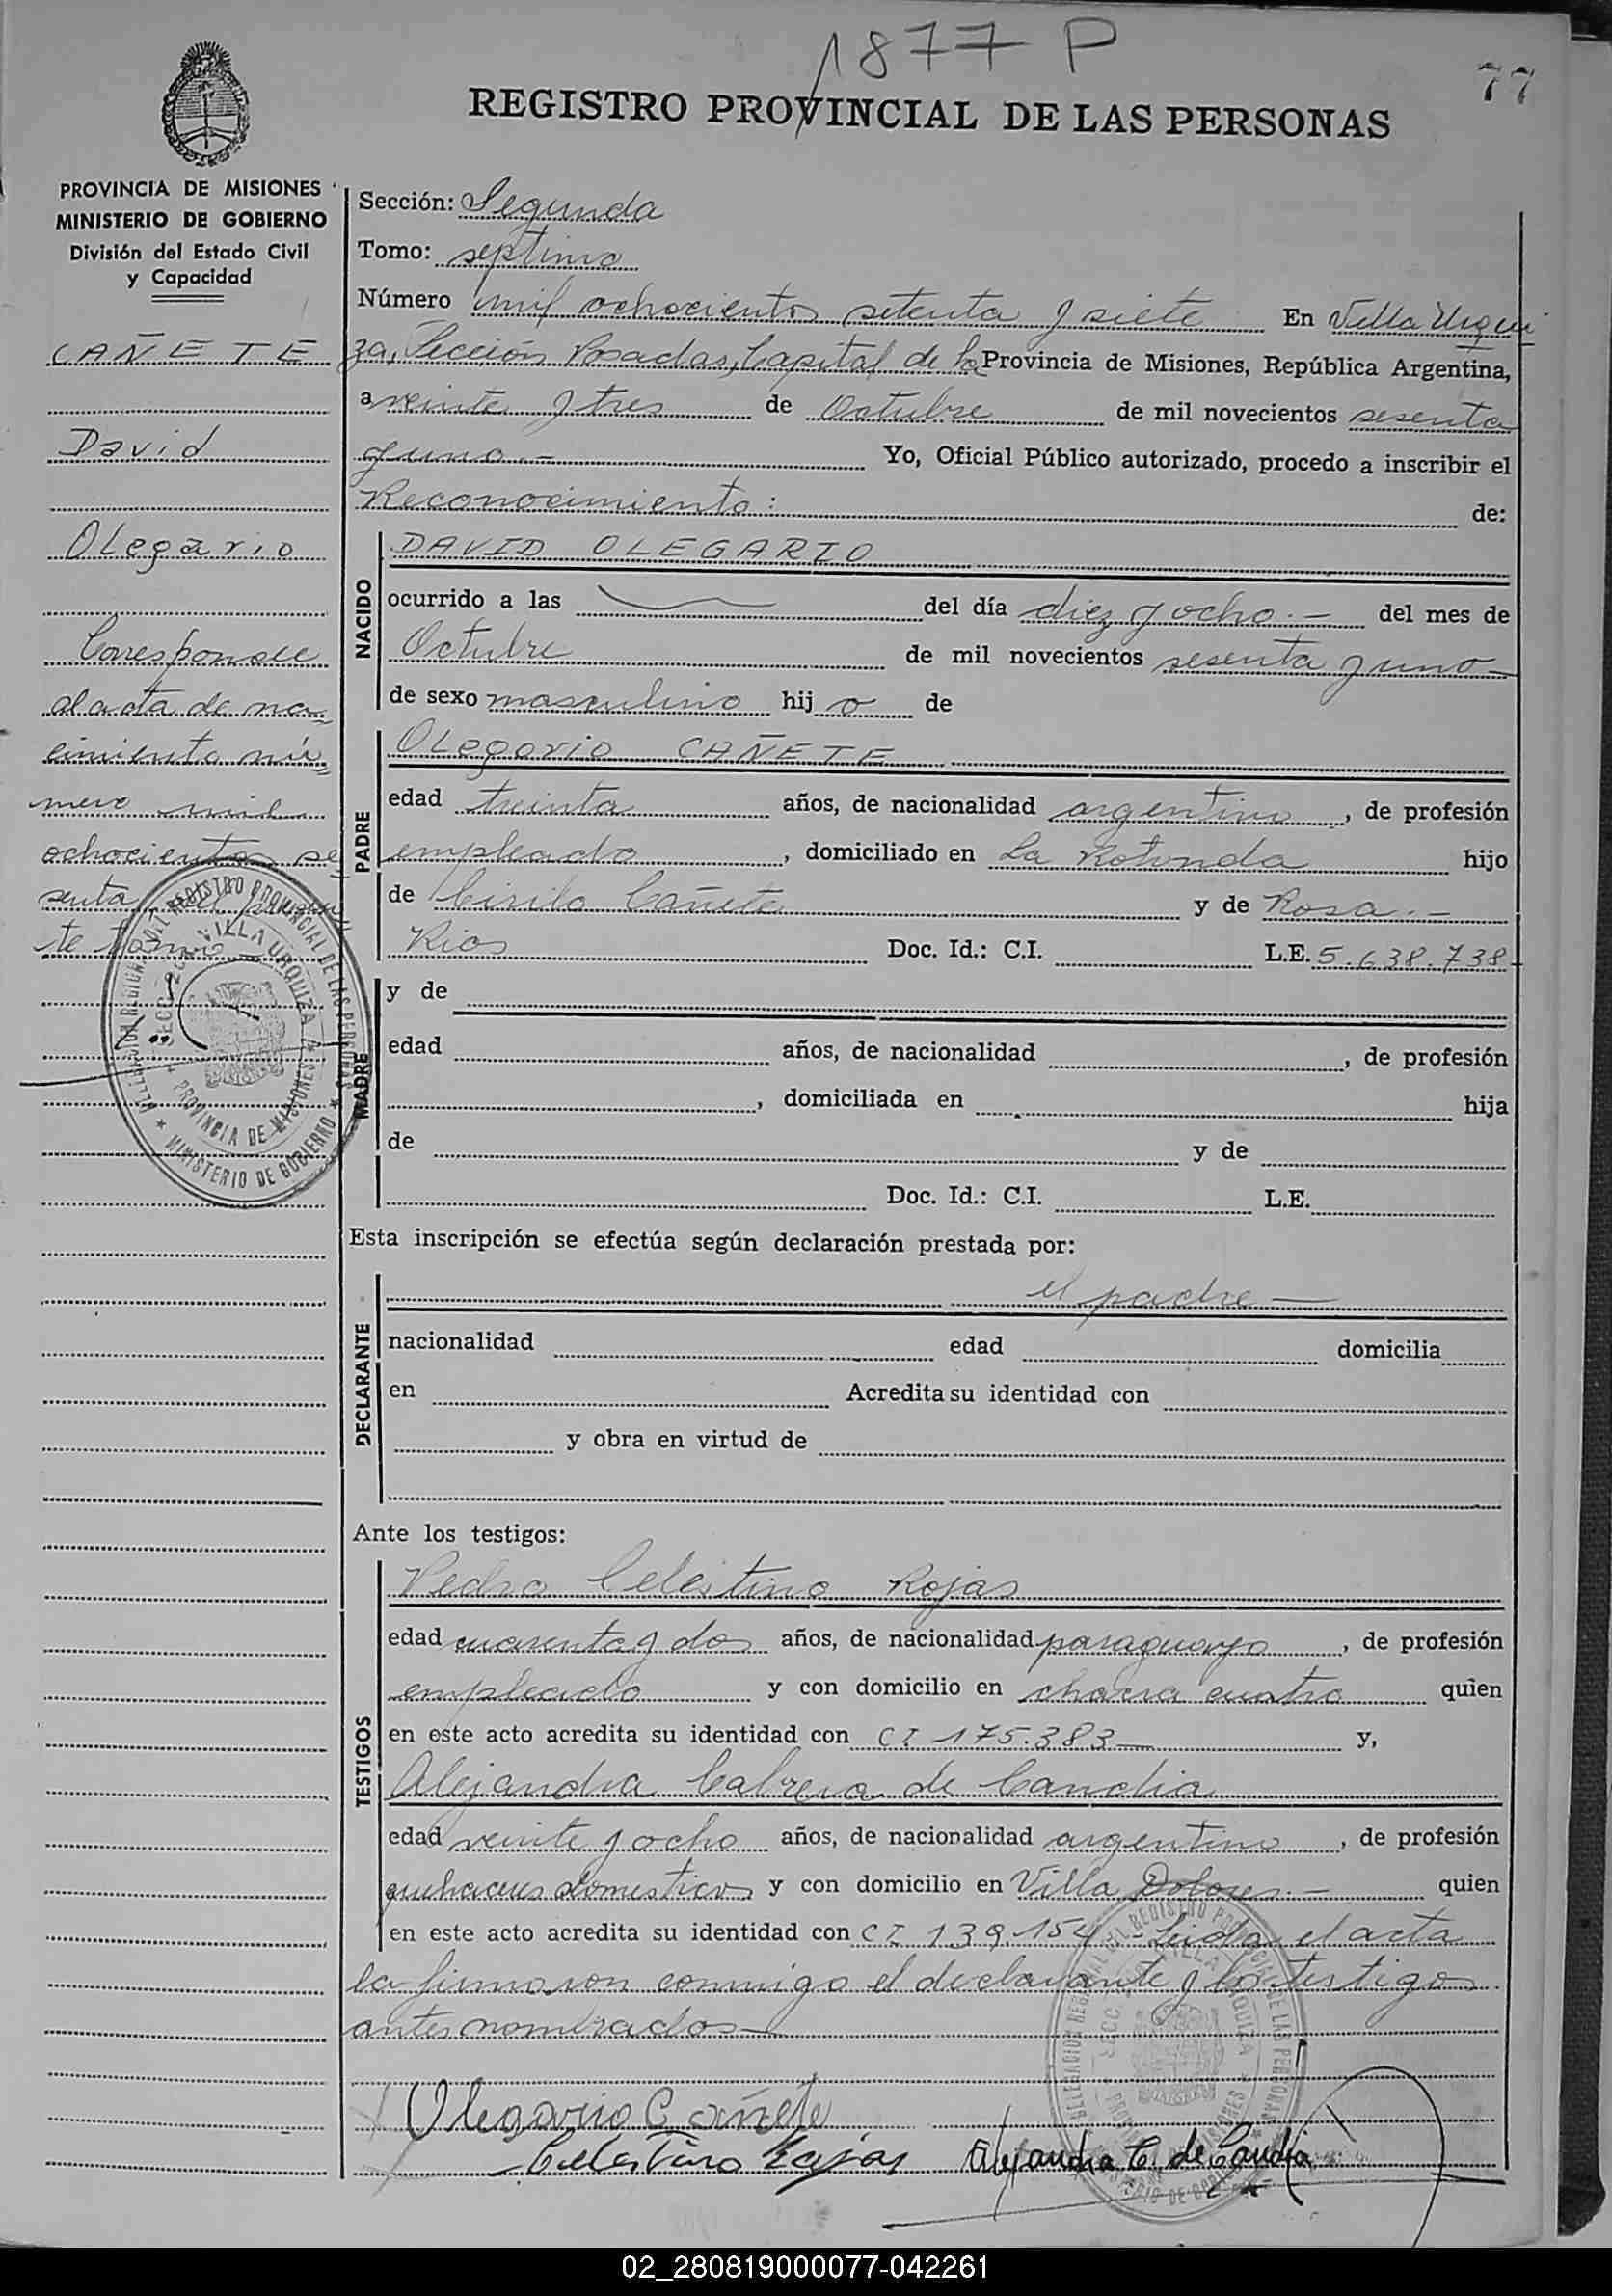 1877 P
77
REGISTRO PROVINCIAL DE LAS PERSONAS
PROVINCIA DE MISIONES
MINISTERIO DE GOBIERNO
División del Estado Civil
y Capacidad
CAÑETE
David
Olegario
Corresponde
al acta de na-
cimiento nú-
mero mil
ochocientos se
senta del presen
te tomo
DELEGACION REGIONAL DEL REGISTRO PROVINCIAL DE LAS PERSONAS
SECC. 2a. VILLA URQUIZA
PROVINCIA DE MISIONES
MINISTERIO DE GOBIERNO
Sección: Segunda
Tomo: septimo
Número mil ochocientos setenta y siete En Villa Urqui
za, Sección Posadas, Capital de la Provincia de Misiones, República Argentina,
a veinte y tres de Octubre de mil novecientos sesenta
y uno.- Yo, Oficial Público autorizado, procedo a inscribir el
Reconocimiento: de:
NACIDO
DAVID OLEGARIO
ocurrido a las del día diez y ocho.- del mes de
Octubre de mil novecientos sesenta y uno
de sexo masculino hijo de
PADRE
Olegario CAÑETE
edad treinta años, de nacionalidad argentino, de profesión
empleado, domiciliado en La Rotonda hijo
de Cirilo Cañete y de Rosa.-
Rios Doc. Id.: C.I. L.E. 5.638.738
MADRE
y de
edad años, de nacionalidad , de profesión
, domiciliada en hija
de y de
Doc. Id.: C.I. L.E.
Esta inscripción se efectúa según declaración prestada por:
DECLARANTE
el padre
nacionalidad edad domicilia
en Acredita su identidad con
y obra en virtud de
Ante los testigos:
TESTIGOS
Pedro Celestino Rojas
edad cuarenta y dos años, de nacionalidad paraguayo, de profesión
empleado y con domicilio en chacra cuatro quien
en este acto acredita su identidad con CI 175.383 y,
Alejandra Cabrera de Candia
edad veinte y ocho años, de nacionalidad argentina, de profesión
quehaceres domesticos y con domicilio en Villa Dolores.- quien
en este acto acredita su identidad con CI 139.154 Leida el acta
la firmaron conmigo el declarante y los testigos
antes nombrados
Olegario Cañete
Celestino Rojas Alejandra C. de Candia
02_280819000077-042261